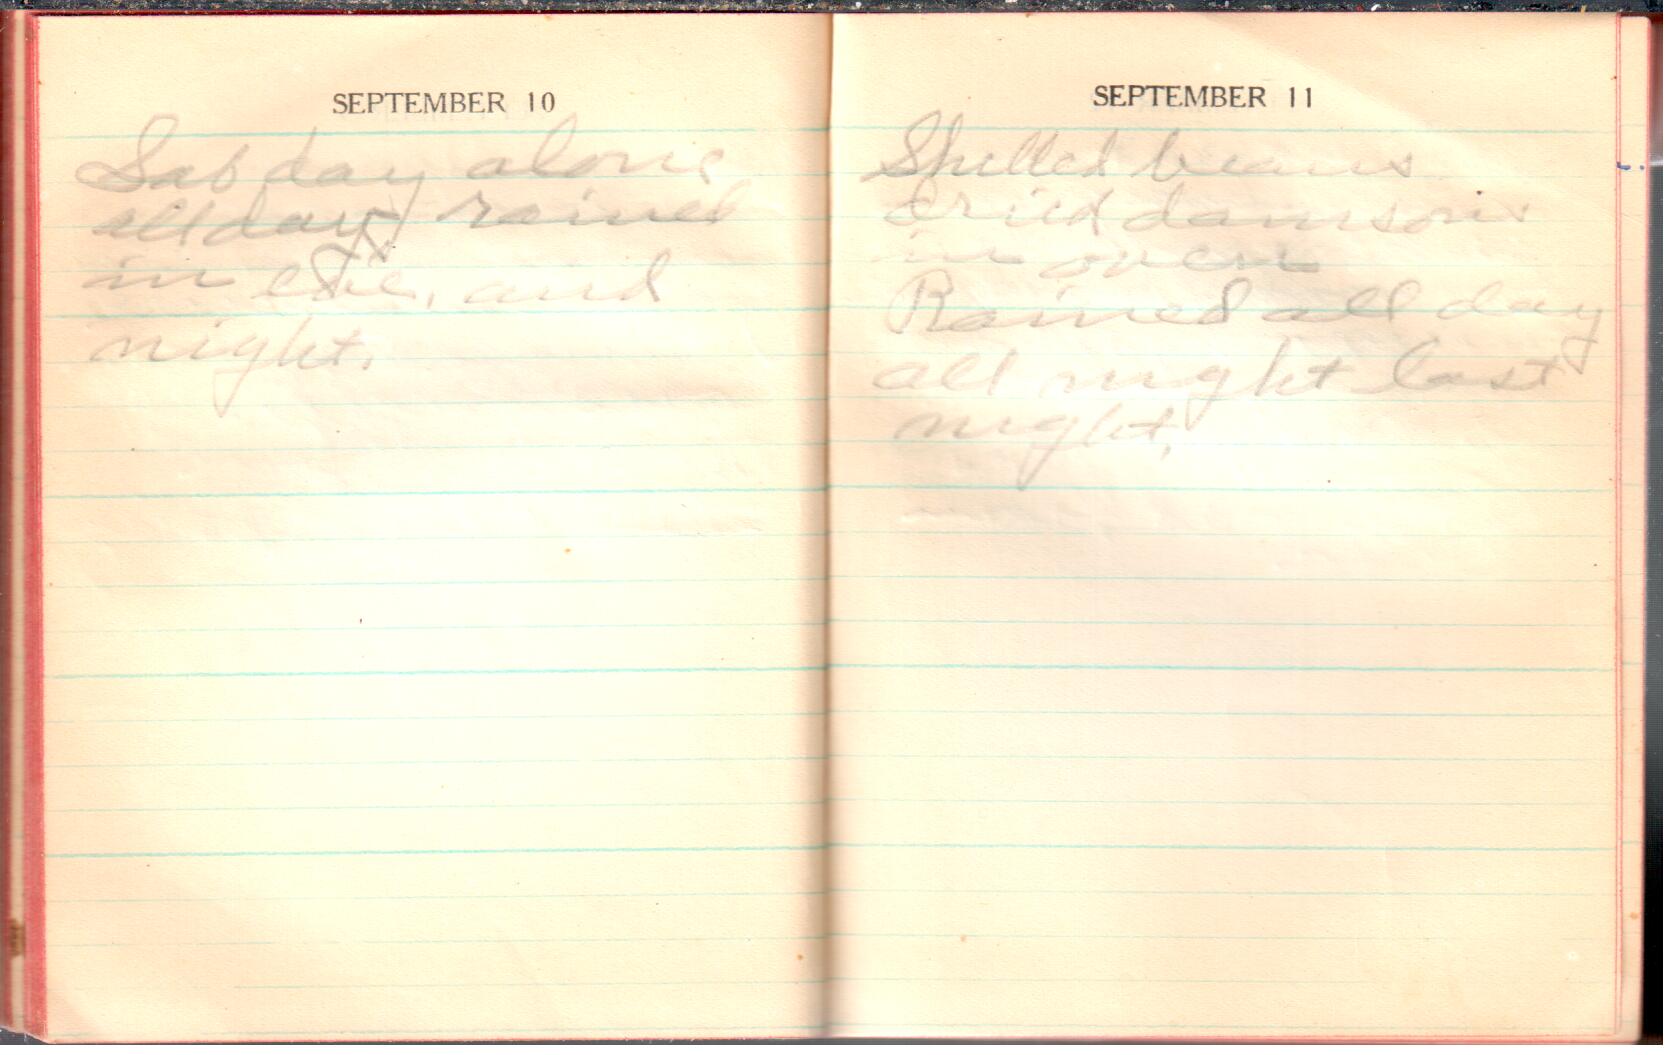 SEPTEMBER 10
Sab day alone
all day rained
in eve. and
night.
SEPTEMBER 11
Shelled beans
dried damsons
in oven
Rained all day
all night last
night.